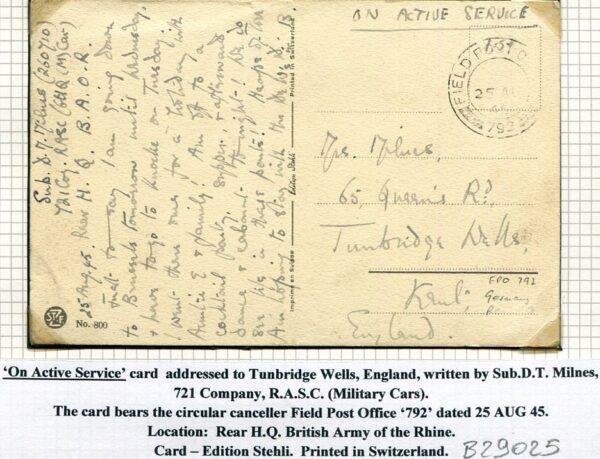 Sub. D.T. Milnes (260710)
721 Coy. RASC (GHQ (M) Car)
25 Aug. 45. Rear H.Q. B.A.O.R.
Just to say I am going down
to Brussels tomorrow until Wednesday,
& have to go to Knocke on Tuesday.
I went there once for a holiday with
Auntie E & family! Am off to a
cocktail party, supper, & afterwards
dance & cabaret to-night! We do
see life in these parts!
Am hoping to stay with the
Printed in Switzerland
Edition Stehli
Imprimé en Suisse
SZF
No. 800
ON ACTIVE SERVICE
FIELD POST OFFICE
25 AU
45
792
Mrs. Milnes,
65, Queen's Rd,
Tunbridge Wells,
Kent,
England.
FPO 792
Germany
'On Active Service' card addressed to Tunbridge Wells, England, written by Sub.D.T. Milnes,
721 Company, R.A.S.C. (Military Cars).
The card bears the circular canceller Field Post Office '792' dated 25 AUG 45.
Location: Rear H.Q. British Army of the Rhine.
Card – Edition Stehli. Printed in Switzerland. B29025